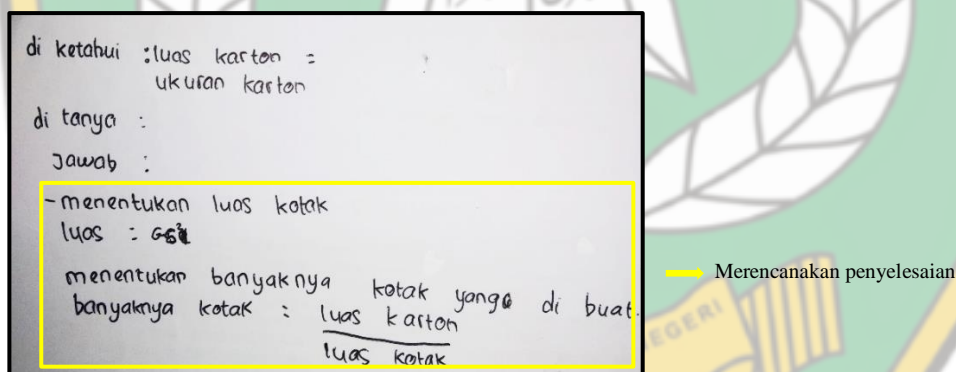 di ketahui : luas karton =
ukuran karton
di tanya :
Jawab :
- menentukan luas kotak
luas : 6s²
menentukan banyaknya kotak yang di buat.
banyaknya kotak : luas karton
luas kotak
Merencanakan penyelesaian
NEGERI